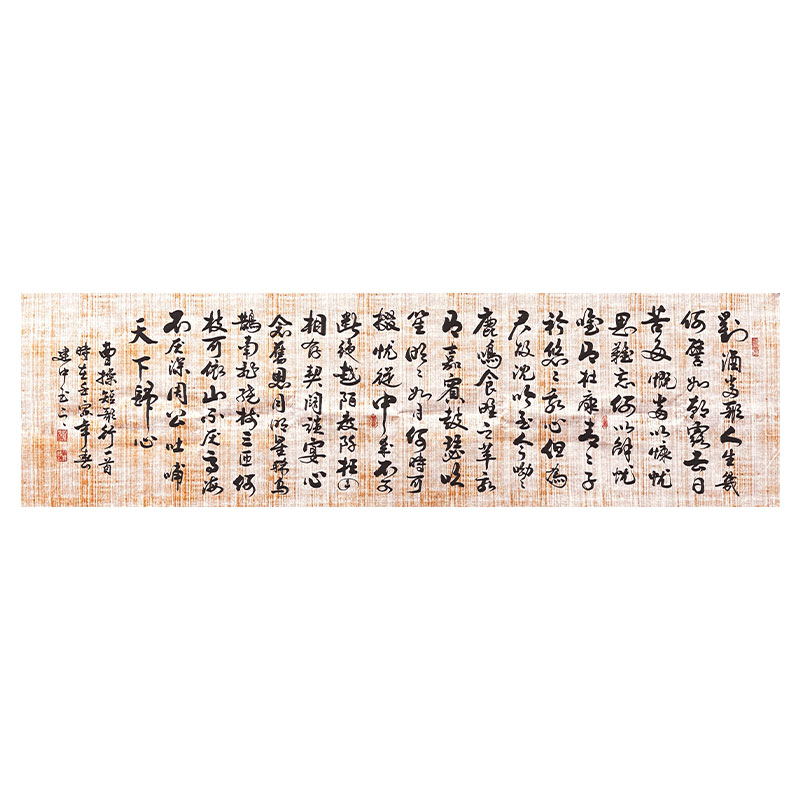 對酒當歌人生幾
何譬如朝露去日
苦多慨當以慷忧
思難忘何以解忧
唯有杜康青々子
衿悠々我心但為
君故沈吟至今呦々
鹿鳴食野之苹我
有嘉賓鼓瑟吹
笙明々如月何時可
掇忧從中來不可
斷絕越陌度阡枉用
相存契闊談宴心
念舊恩月明星稀烏
鵲南飛繞樹三匝何
枝可依山不厭高海
不厭深周公吐哺
天下歸心
曹操短歌行一首
時在壬寅年春
建中書